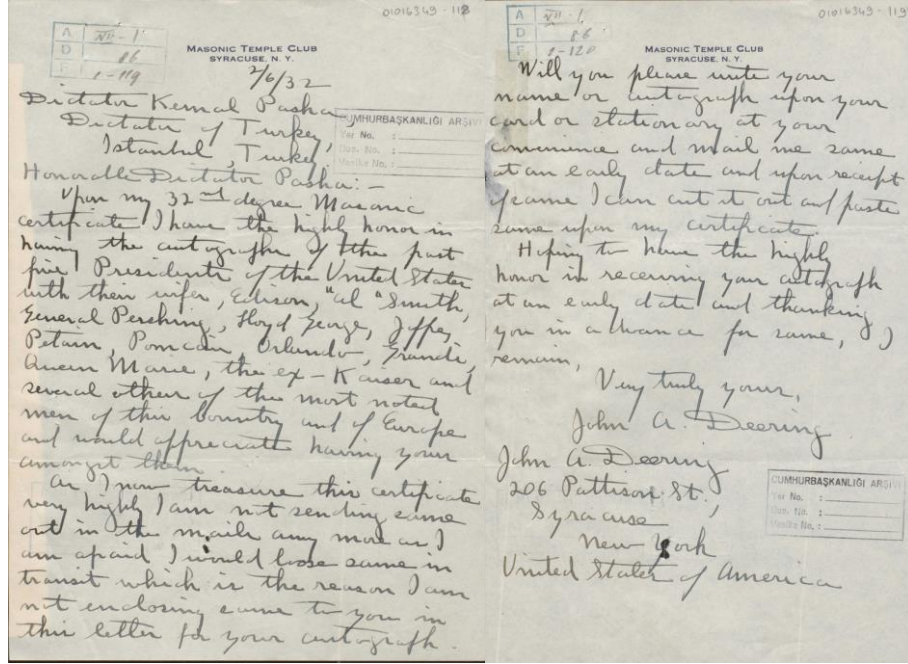 01016349-118
A VII-1
D 86
F 1-119
MASONIC TEMPLE CLUB
SYRACUSE, N. Y.
2/6/32
Dictator Kemal Pasha
Dictator of Turkey,
Istanbul, Turkey.
CUMHURBAŞKANLIĞI ARŞİVİ
Yer No. :
Dos. No. :
Vesika No. :
Honorable Dictator Pasha:-
Upon my 32nd degree Masonic
certificate I have the highly honor in
having the autographs of the past
five Presidents of the United States
with their wifes, Edison, "Al" Smith,
General Pershing, Lloyd George, Joffre,
Petain, Poncair, Orlando, Grandi,
Queen Marie, the ex-Kaiser and
several others of the most noted
men of this country and of Europe
and would appreciate having yours
amongst them.
As I now treasure this certificate
very highly I am not sending same
out in the mails any more as I
am afraid I would loose same in
transit which is the reason I am
not enclosing same to you in
this letter for your autograph.
01016349-119
A VII-1
D 86
F 1-120
MASONIC TEMPLE CLUB
SYRACUSE, N. Y.
Will you please write your
name or autograph upon your
card or stationary at your
convinience and mail me same
at an early date and upon receipt
of same I can cut it out and paste
same upon my certificate.
Hoping to have the highly
honor in receiving your autograph
at an early date and thanking
you in advance for same, I
remain,
Very truly yours,
John A. Deering
John A. Deering
206 Pattison St.,
Syracuse
New York
United States of America
CUMHURBAŞKANLIĞI ARŞİVİ
Yer No. :
Dos. No. :
Vesika No. :